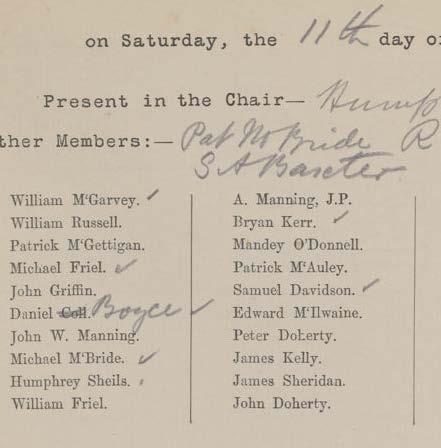 on Saturday, the 11th day of
Present in the Chair— Hump
ther Members:— Pat McBride R
S A Baxter
William M'Garvey. ✓
William Russell.
Patrick M'Gettigan.
Michael Friel. ✓
John Griffin.
Daniel Coll. Boyce ✓
John W. Manning.
Michael M'Bride. ✓
Humphrey Sheils.
William Friel.
A. Manning, J.P.
Bryan Kerr. ✓
Mandey O'Donnell.
Patrick M'Auley.
Samuel Davidson. ✓
Edward M'Ilwaine.
Peter Doherty.
James Kelly.
James Sheridan.
John Doherty.